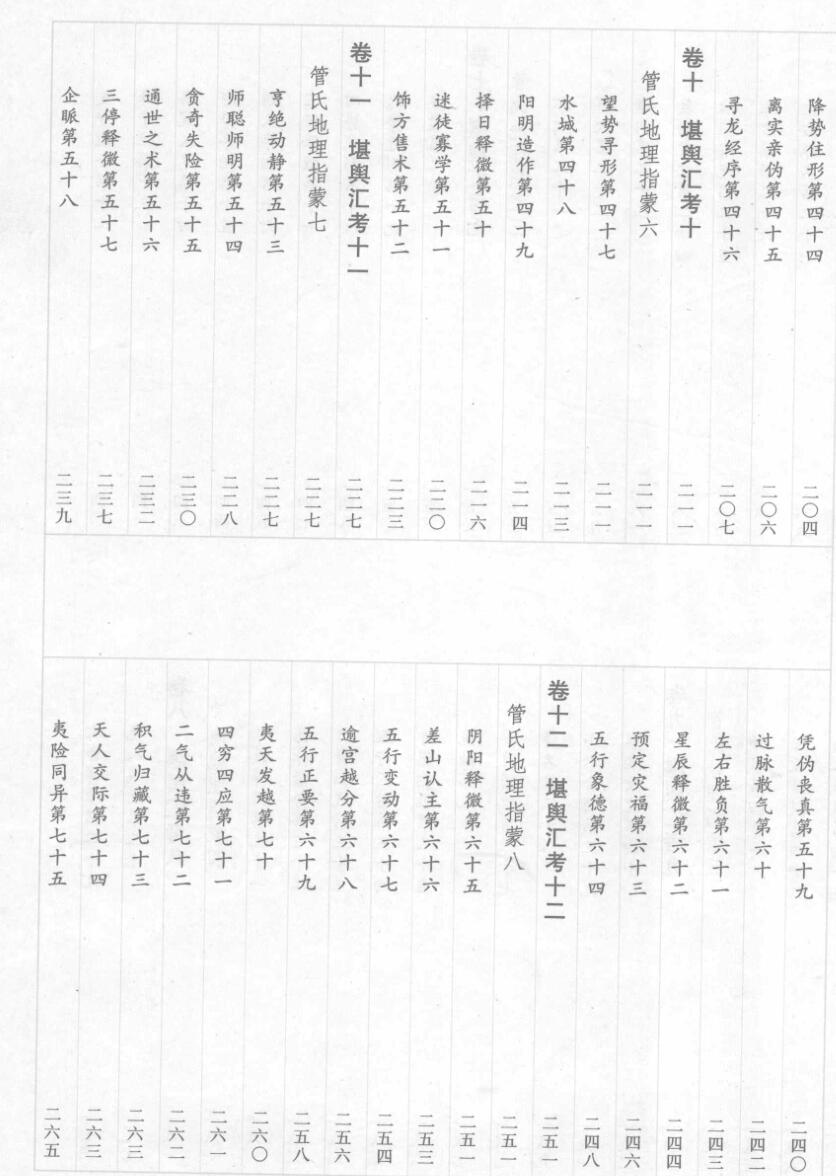 降势住形第四十四 二〇四
离实亲伪第四十五 二〇六
寻龙经序第四十六 二〇七
卷十 堪舆汇考十 二一一
管氏地理指蒙六 二一一
望势寻形第四十七 二一一
水城第四十八 二一三
阳明造作第四十九 二一四
择日释微第五十 二一六
迷徒寡学第五十一 二二〇
饰方售术第五十二 二二三
卷十一 堪舆汇考十一 二二七
管氏地理指蒙七 二二七
亨绝动静第五十三 二二七
师聪师明第五十四 二二八
贪奇失险第五十五 二三〇
通世之术第五十六 二三二
三停释微第五十七 二三七
企脈第五十八 二三九
凭伪丧真第五十九 二四〇
过脉散气第六十 二四二
左右胜负第六十一 二四三
星辰释微第六十二 二四四
预定灾福第六十三 二四六
五行象德第六十四 二四八
卷十二 堪舆汇考十二 二五一
管氏地理指蒙八 二五一
阴阳释微第六十五 二五一
差山认主第六十六 二五三
五行变动第六十七 二五四
逾宫越分第六十八 二五六
五行正要第六十九 二五八
夷夭发越第七十 二六〇
四穷四应第七十一 二六一
二气从违第七十二 二六二
积气归藏第七十三 二六三
天人交际第七十四 二六三
夷险同异第七十五 二六五